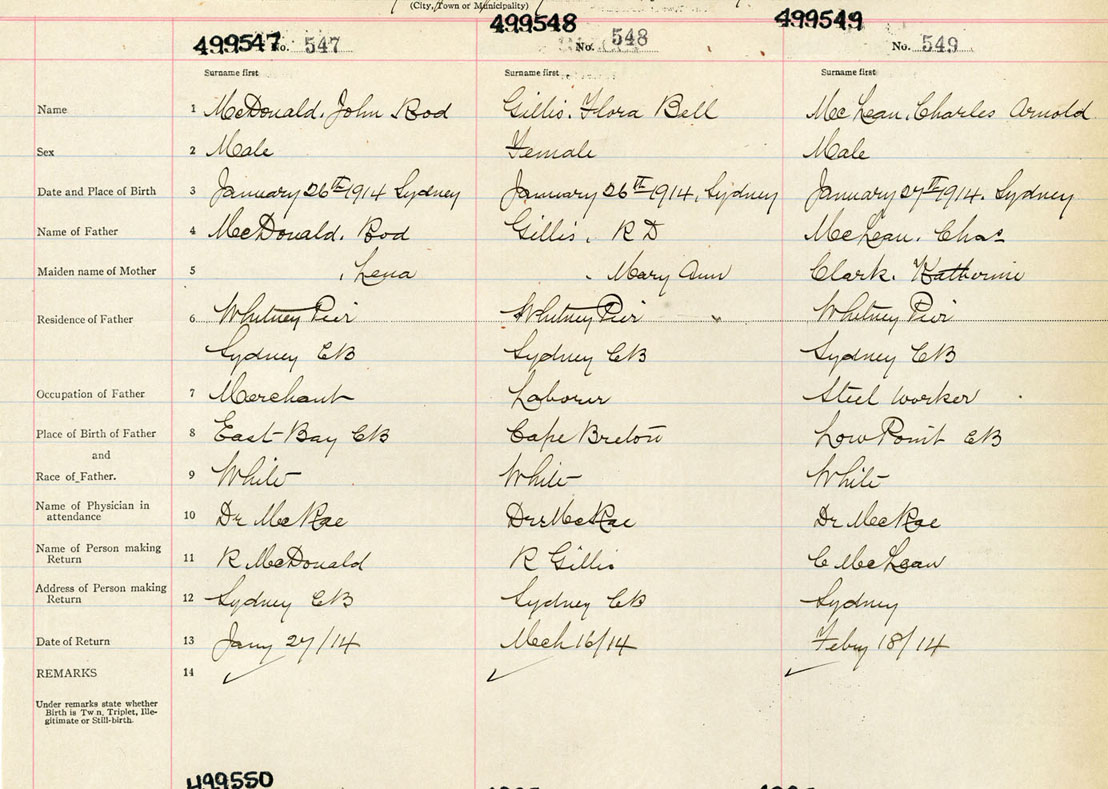 (City, Town or Municipality)
499547 No. 547 499548 No. 548 499549 No. 549
Surname first Surname first Surname first
Name 1 McDonald. John Rod Gillis. Flora Bell McLean. Charles Arnold
Sex 2 Male Female Male
Date and Place of Birth 3 January 26th 1914 Sydney January 26th 1914, Sydney January 27th 1914. Sydney
Name of Father 4 McDonald. Rod Gillis. R D McLean. Chas
Maiden name of Mother 5 . Lena . Mary Ann Clark. Katherine
Residence of Father 6 Whitney Pier Whitney Pier Whitney Pier
Sydney CB Sydney CB Sydney CB
Occupation of Father 7 Merchant Laborer Steel worker
Place of Birth of Father 8 East Bay CB Cape Breton Low Point CB
and
Race of Father. 9 White White White
Name of Physician in
attendance 10 Dr McRae Dr McRae Dr McRae
Name of Person making
Return 11 R McDonald R Gillis C McLean
Address of Person making
Return 12 Sydney CB Sydney CB Sydney
Date of Return 13 Jany 27/14 Mch 16/14 Feby 18/14
REMARKS 14
Under remarks state whether
Birth is Twn, Triplet, Ille-
gitimate or Still-birth.
499550